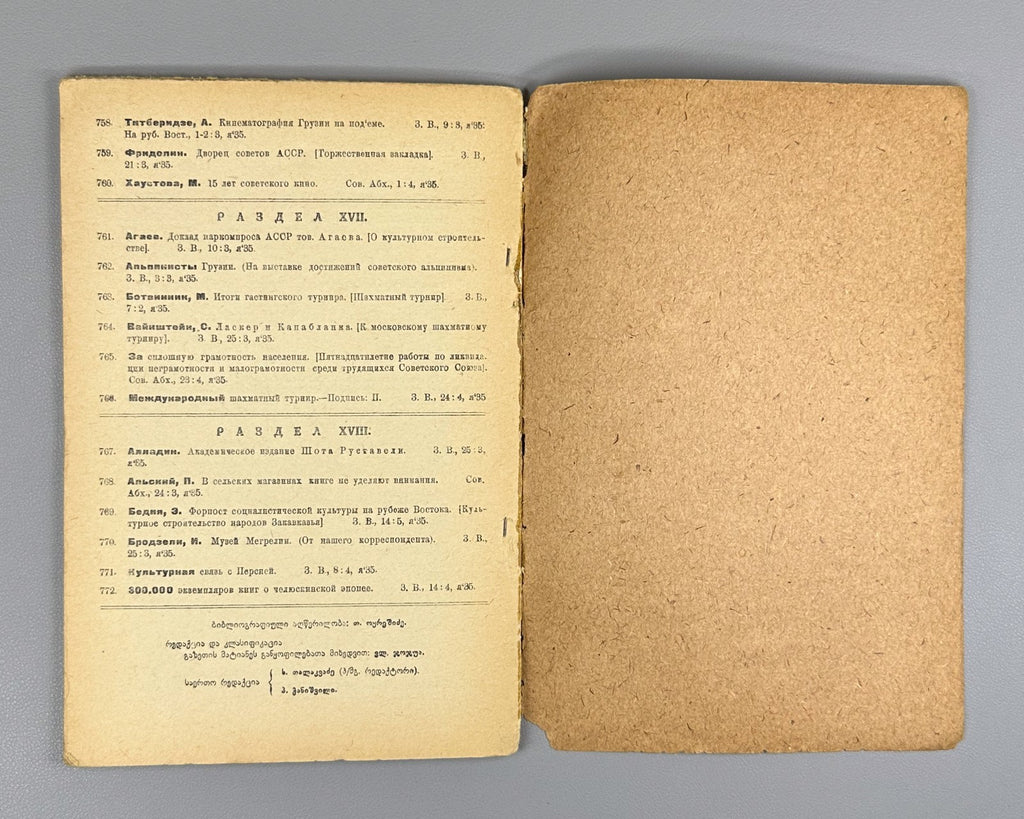 758. Титберидзе, А. Кинематография Грузии на под'еме. З. В., 9 : 3, я'35:
На руб. Вост., 1-2 : 3, я'35.
759. Фридолин. Дворец советов АССР. [Торжественная закладка]. З. В.,
21 : 3, я'35.
760. Хаустова, М. 15 лет советского кино. Сов. Абх., 1 : 4, я'35.
РАЗДЕЛ XVII.
761. Агаев. Доклад наркомпроса АССР тов. Агаева. [О культурном строитель-
стве]. З. В., 10 : 3, я'35.
762. Альпинисты Грузии. (На выставке достижений советского альпинизма).
З. В., 3 : 3, я'35.
763. Ботвинник, М. Итоги гастингского турнира. [Шахматный турнир]. З. В.,
7 : 2, я'35.
764. Вайнштейн, С. Ласкер и Капабланка. [К московскому шахматному
турниру]. З. В., 25 : 3, я'35.
765. За сплошную грамотность населения. [Пятнадцатилетие работы по ликвида.
ции неграмотности и малограмотности среди трудящихся Советского Союза].
Сов. Абх., 23 : 4, я'35.
766. Международный шахматный турнир.—Подпись: П. З. В., 24 : 4, я'35
РАЗДЕЛ XVIII.
767. Аладин. Академическое издание Шота Руставели. З. В., 25 : 3,
я'35.
768. Альский, П. В сельских магазинах книге не уделяют внимания. Сов.
Абх., 24 : 3, я'35.
769. Бедия, Э. Форпост социалистической культуры на рубеже Востока. [Куль-
турное строительство народов Закавказья] З. В., 14 : 5, я'35.
770. Бродзели, И. Музей Мегрелии. (От нашего корреспондента). З. В.,
25 : 3, я'35.
771. Культурная связь с Персией. З. В., 8 : 4, я'35.
772. 300.000 экземпляров книг о челюскинской эпопее. З. В., 14 : 4, я'35.
ბიბლიოგრაფიული აღწერილობა: თ. ოცრეშიძე.
რედაქცია და კლასიფიკაცია
გაზეთის მატიანეს განყოფილებათა მიხედვით: ვლ. ჯოჯუა.
საერთო რედაქცია { ს. თალაკვაძე (პ/მგ. რედაქტორი).
პ. განიშვილი.